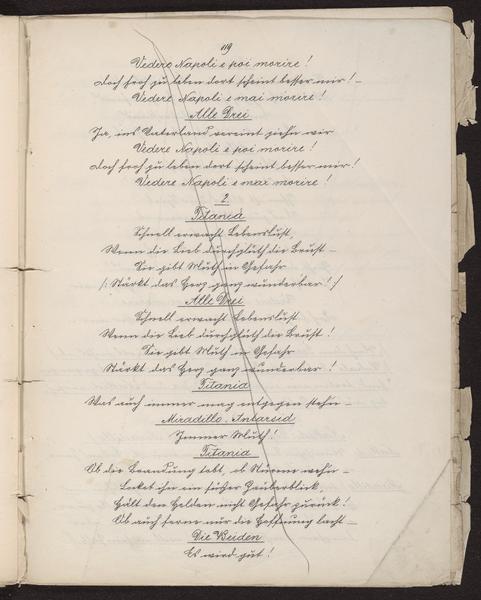 119
Vedere Napoli e poi morire!
Doch froh zu leben dort scheint besser mir! –
Vedere Napoli e mai morire!
Alle Drei
Ja, ins Vaterland vereint ziehn wir
Vedere Napoli e poi morire!
Doch froh zu leben dort scheint besser mir!
Vedere Napoli e mai morire!
2.
Titania
Schnell erwacht Lebenslust,
Wenn die Lieb durchglüht die Brust –
Sie gibt Muth in Gefahr
/: Stärkt das Herz ganz wunderbar! :/
Alle Drei
Schnell erwacht Lebenslust
Wenn die Lieb durchglüht die Brust!
Sie gibt Muth in Gefahr
Stärkt das Herz ganz wunderbar!
Titania
Was auch immer mag entgegen stehn –
Miradillo. Antarsid
Immer Muth!
Titania
Ob die Brandung tobt, ob Stürme wehn –
Lockt ihn ein süßer Zauberblick,
Hält den Helden nicht Gefahr zurück!
Ob auch ferne nur die Hoffnung lacht –
Die Beiden
Es wird gut!